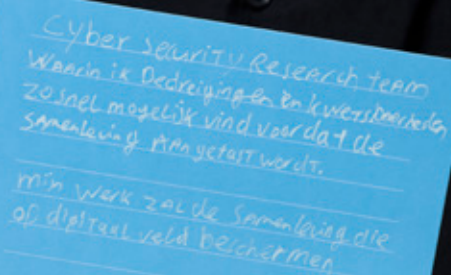 Cyber Security Research team
Waarin ik Bedreigingen en kwetsbaarheden
zo snel mogelijk vind voordat de
samenleving Aangetast wordt.
mijn werk zal de samenleving die
op digitaal veld beschermen